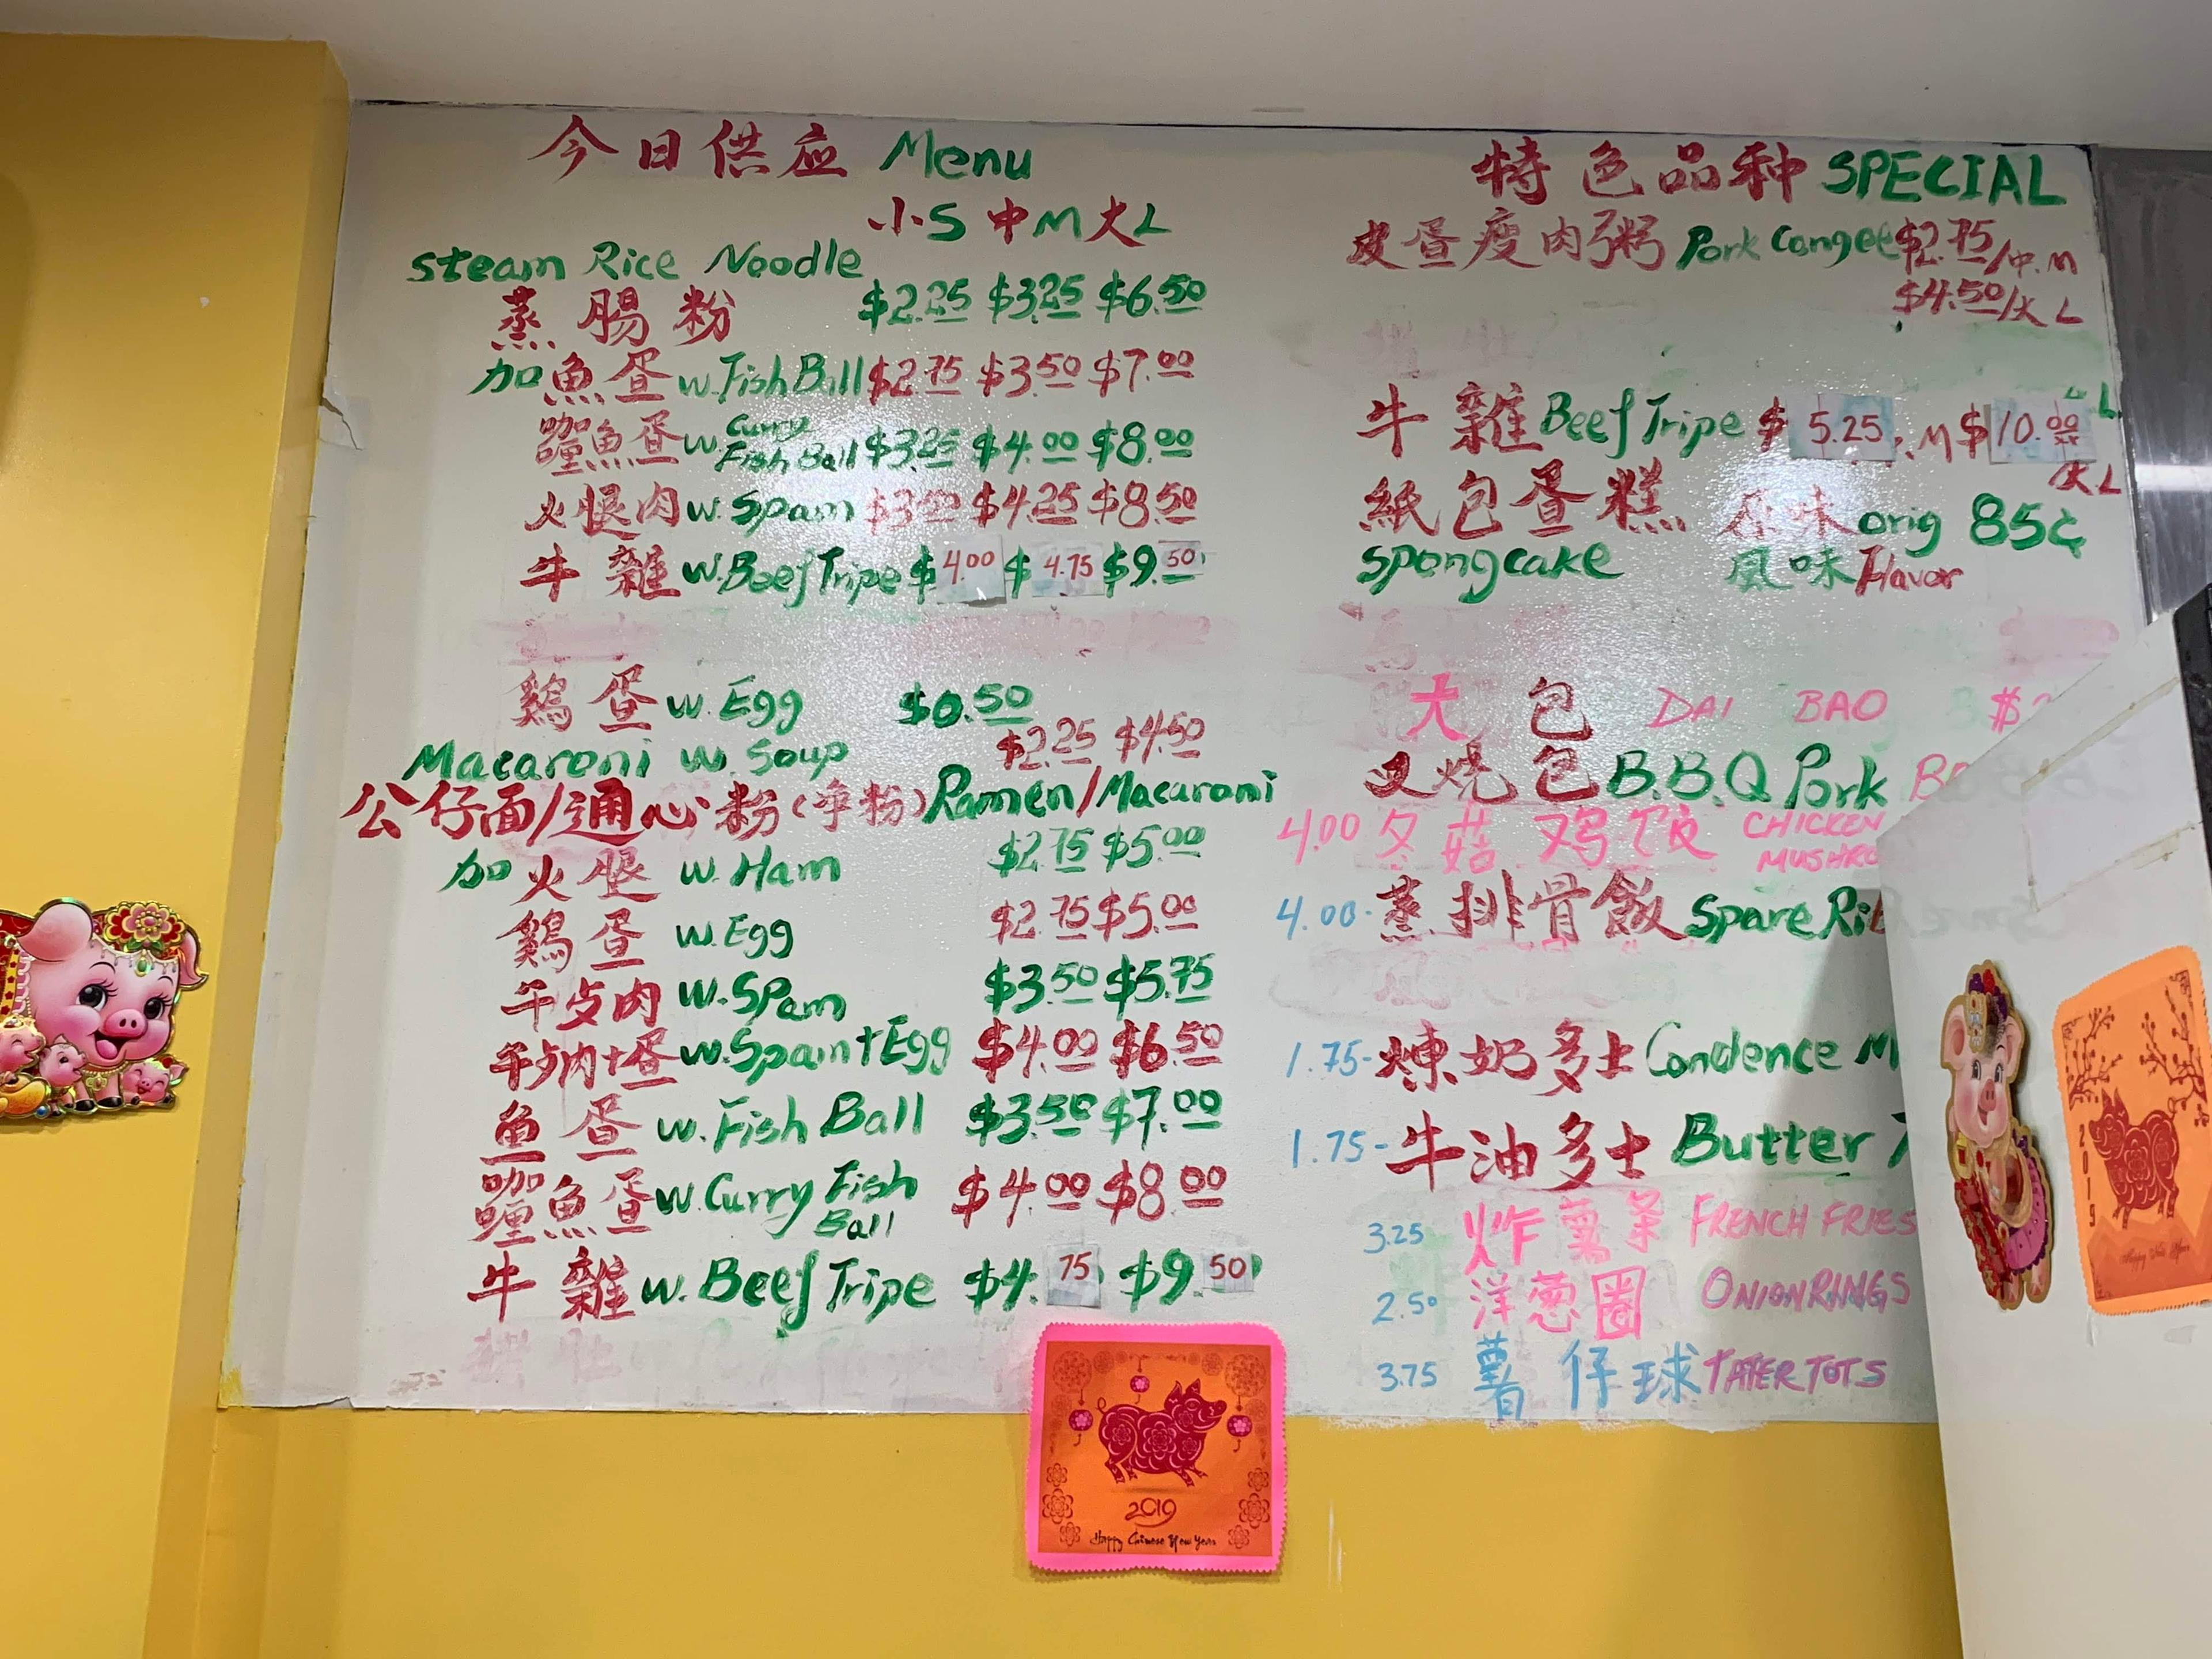 今日供应 Menu
小S 中M 大L
Steam Rice Noodle
蒸腸粉 $2.25 $3.25 $6.50
加魚蛋 w. Fish Ball $2.75 $3.50 $7.00
咖喱魚蛋 w. Curry Fish Ball $3.25 $4.00 $8.00
火腿肉 w. Spam $3.50 $4.25 $8.50
牛雜 w. Beef Tripe $4.00 $4.75 $9.50
鷄蛋 w. Egg $0.50
Macaroni w. Soup $2.25 $4.50
公仔面/通心粉(净粉) Ramen/Macaromi
加火腿 w. Ham $2.75 $5.00
鷄蛋 w. Egg $2.75 $5.00
午歺肉 w. SPam $3.50 $5.75
午歺肉+蛋 w. Spam+Egg $4.00 $6.50
魚蛋 w. Fish Ball $3.50 $7.00
咖喱魚蛋 w. Curry Fish Ball $4.00 $8.00
牛雜 w. Beef Tripe $4.75 $9.50
特色品种 SPECIAL
皮蛋瘦肉粥 Pork Congee $2.75/中.M
$4.50/大 L
牛雜 Beef Tripe $5.25 . M $10.00 L
大L
紙包蛋糕 原味 orig 85¢
Spongcake 風味 Flavor
大包 DAI BAO $
叉烧包 B.B.Q Pork
4.00 冬菇鸡饭 CHICKEN
4.00- 蒸排骨飯 Spare
1.75- 煉奶多士 Condence
1.75- 牛油多士 Butter
3.25 炸薯条 FRENCH FRIES
2.50 洋葱圈 ONION RINGS
3.75 薯仔球 TATER TOTS
2019
Happy Chinese New Year
2019
Happy New Year